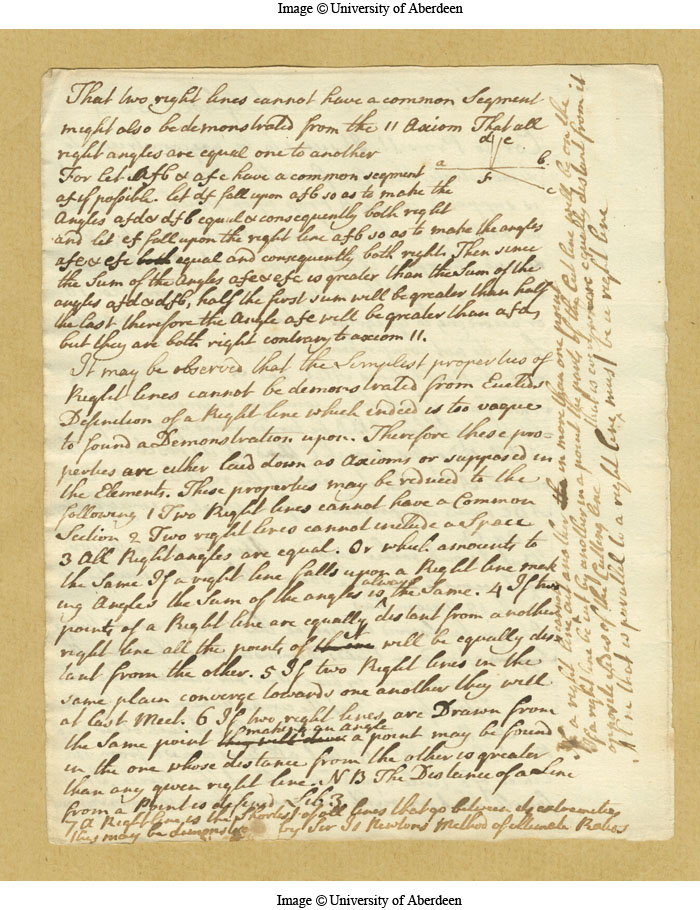 Image © University of Aberdeen
That two right lines cannot have a common Segment
might also be demonstrated from the 11 Axiom That all
right angles are equal one to another
d e
a b
f
c
For let Afb & afc have a common segment
af if possible. let df fall upon afb so as to make the
Angles afd & dfb equal & consequently both right
and let ef fall upon the right line afb so as to make the angles
afe & efc both equal and consequently both right. Then since
the Sum of the Angles afe & efc is greater than the Sum of the
angles afd & dfb, half the first sum will be greater than half
the last therefore the Angle afe will be greater than afd,
but they are both right contrary to axiom 11.
It may be observed that the Simplest properties of
Right lines cannot be demonstrated from Euclids
Definition of a Right line which indeed is too vague
to found a Demonstration upon. Therefore these pro-
perties are either laid down as Axioms or supposed in
the Elements. These properties may be reduced to the
following 1 Two Right lines cannot have a Common
Section 2 Two right lines cannot include a Space
3 All Right angles are equal. Or which amounts to
the Same If a right line falls upon a Right line mak
ing Angles the Sum of the angles is always the Same. 4 If two
points of a Right line are equally distant from another
right line all the points of will be equally dis
tant from the other. 5 If two Right lines in the
same plain converge towards one another they will
at last Meet. 6 If two right lines are Drawn from
the Same point making an angle a point may be found
in the one whose distance from the other is greater
than any given right line. NB The Distance of a Line
from a Point is defined Lib. 3
7 A Right line is the Shortest of all lines that go between its extremities
This may be demonstr by Sir Is Newtons Method of ultimate Ratios
a right line cannot cut another in more than one point
If a right line be cut by another in a point the parts of the Cut line will be on the
opposite sides of the Cutting line
A line that is parallel to a right line that is every where equally distant from it
must be a right line
Image © University of Aberdeen